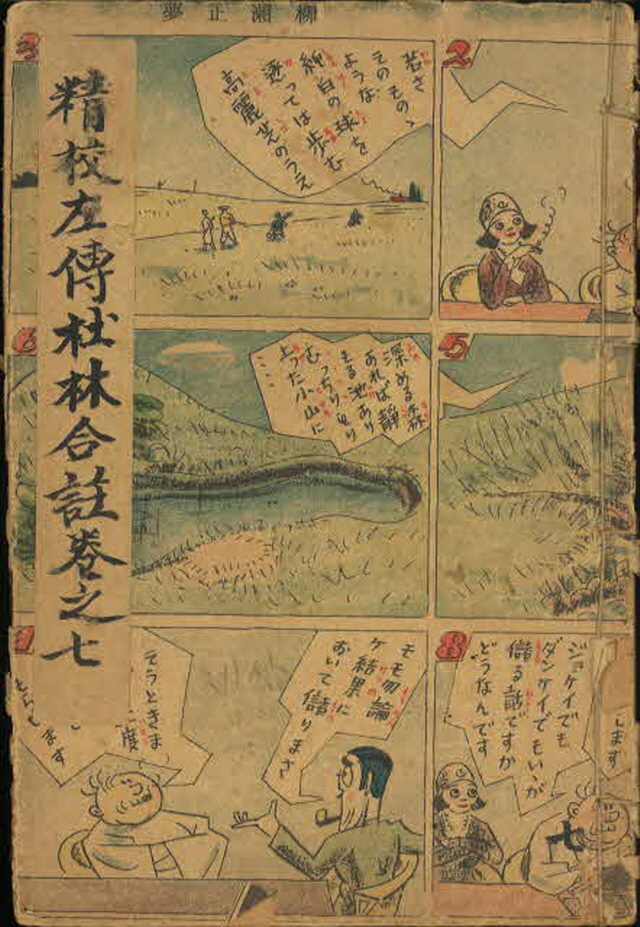 柳瀬正夢
精校左傳杜林合註卷之七
2
若さ
そのもの、
ような
純白の球を
逐っては歩む
高麗芝のうえ
5
深める森
あれば靜
もる池あり
むっちりもり
上った小山に
8
ジョケイでも
ダンケイでもいゝが
儲る話ですか
どうなんです
します
モモ勿論
ケ結果に
おいて儲りまさ
そうときま
度
ます
七